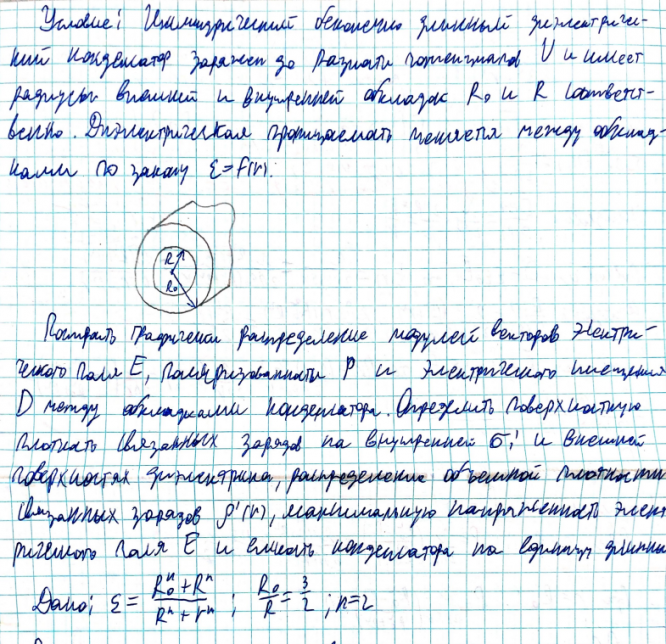 Условие: Цилиндрический бесконечно длинный диэлектричес-
кий конденсатор заряжен до разности потенциалов U и имеет
радиусы внешней и внутренней обкладок R₀ и R соответст-
венно. Диэлектрическая проницаемость меняется между обклад-
ками по закону ε=f(r).
R
R₀
Построить графически распределение модулей векторов электри-
ческого поля E, поляризованности P и электрического смещения
D между обкладками конденсатора. Определить поверхностную
плотность связанных зарядов на внутренней σ₁' и внешней
поверхностях диэлектрика, распределение объемной плотности
связанных зарядов ρ'(r), максимальную напряженность элект
рического поля E и ёмкость конденсатора на единицу длинны
Дано: ε = (R₀ⁿ + Rⁿ)/(Rⁿ + rⁿ) ; R₀/R = 3/2 ; n=2